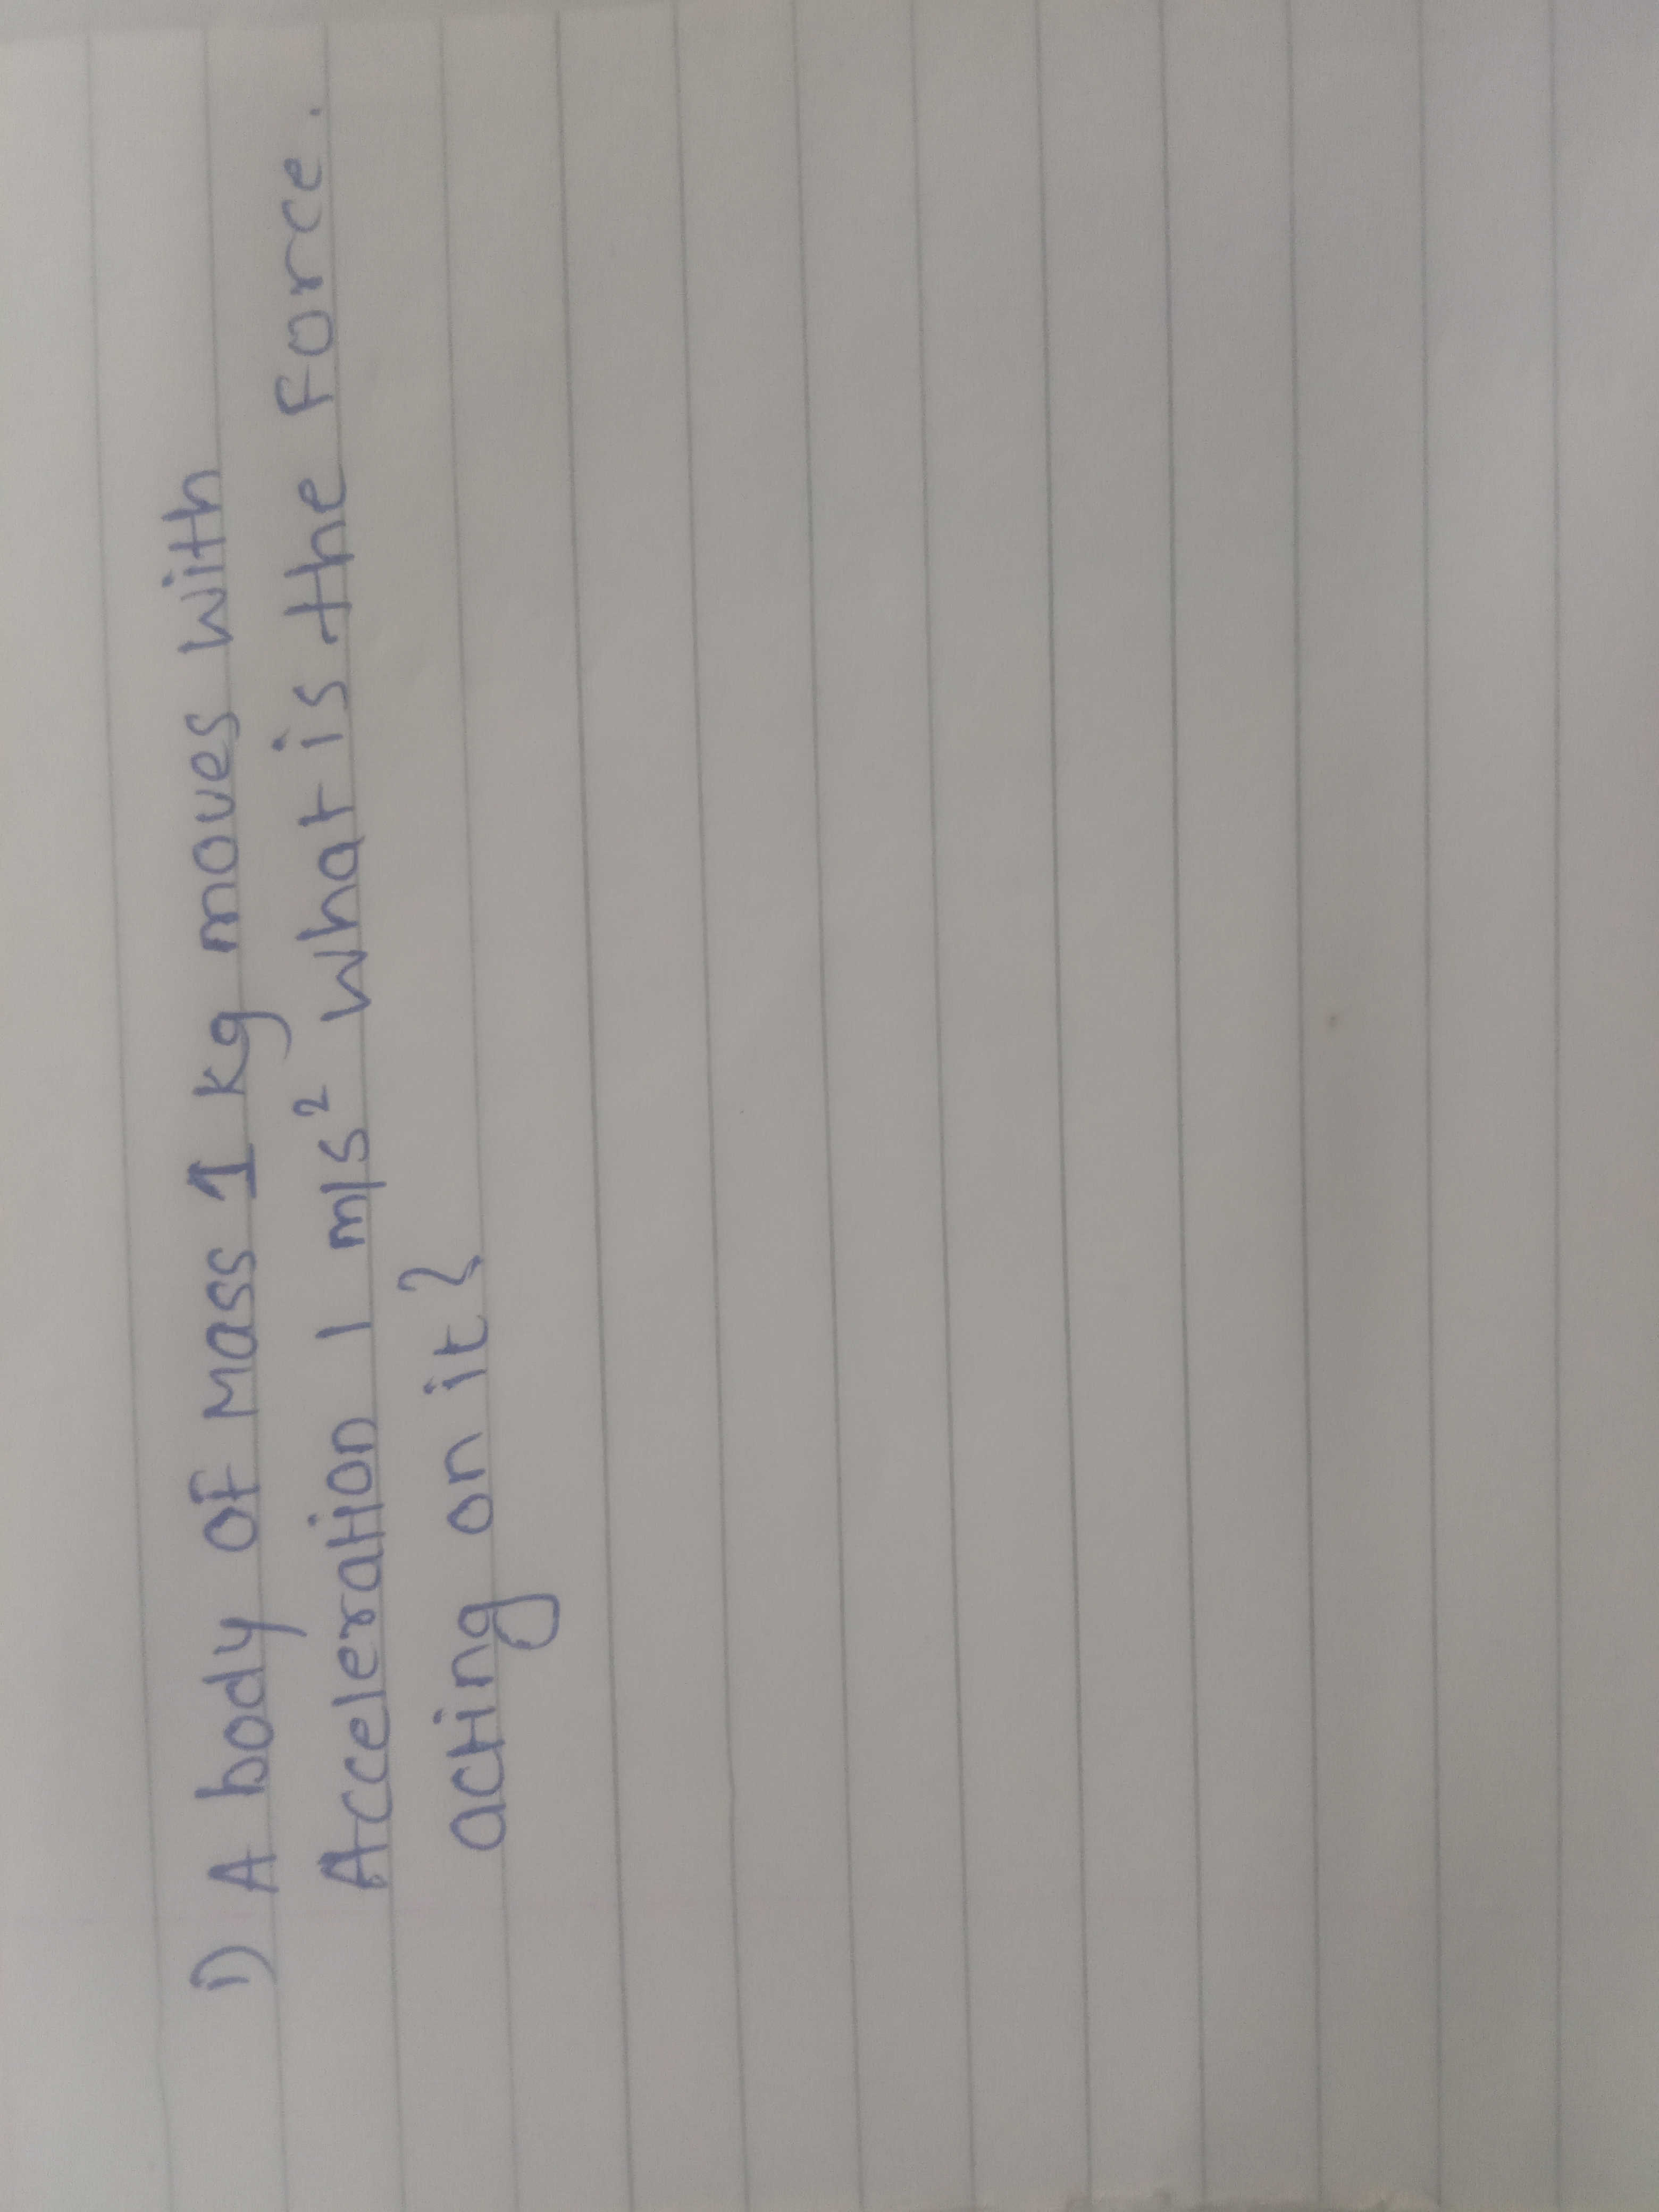 1) A body of Mass 1 Kg moves with
Acceleration 1 m/s² what is the Force.
acting on it?